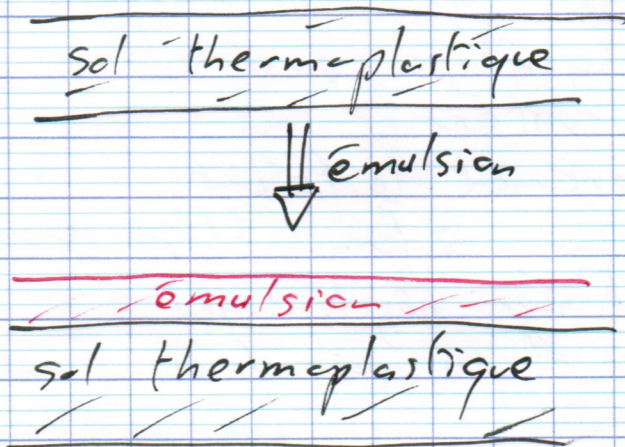 sol thermoplastique
émulsion
émulsion
sol thermoplastique